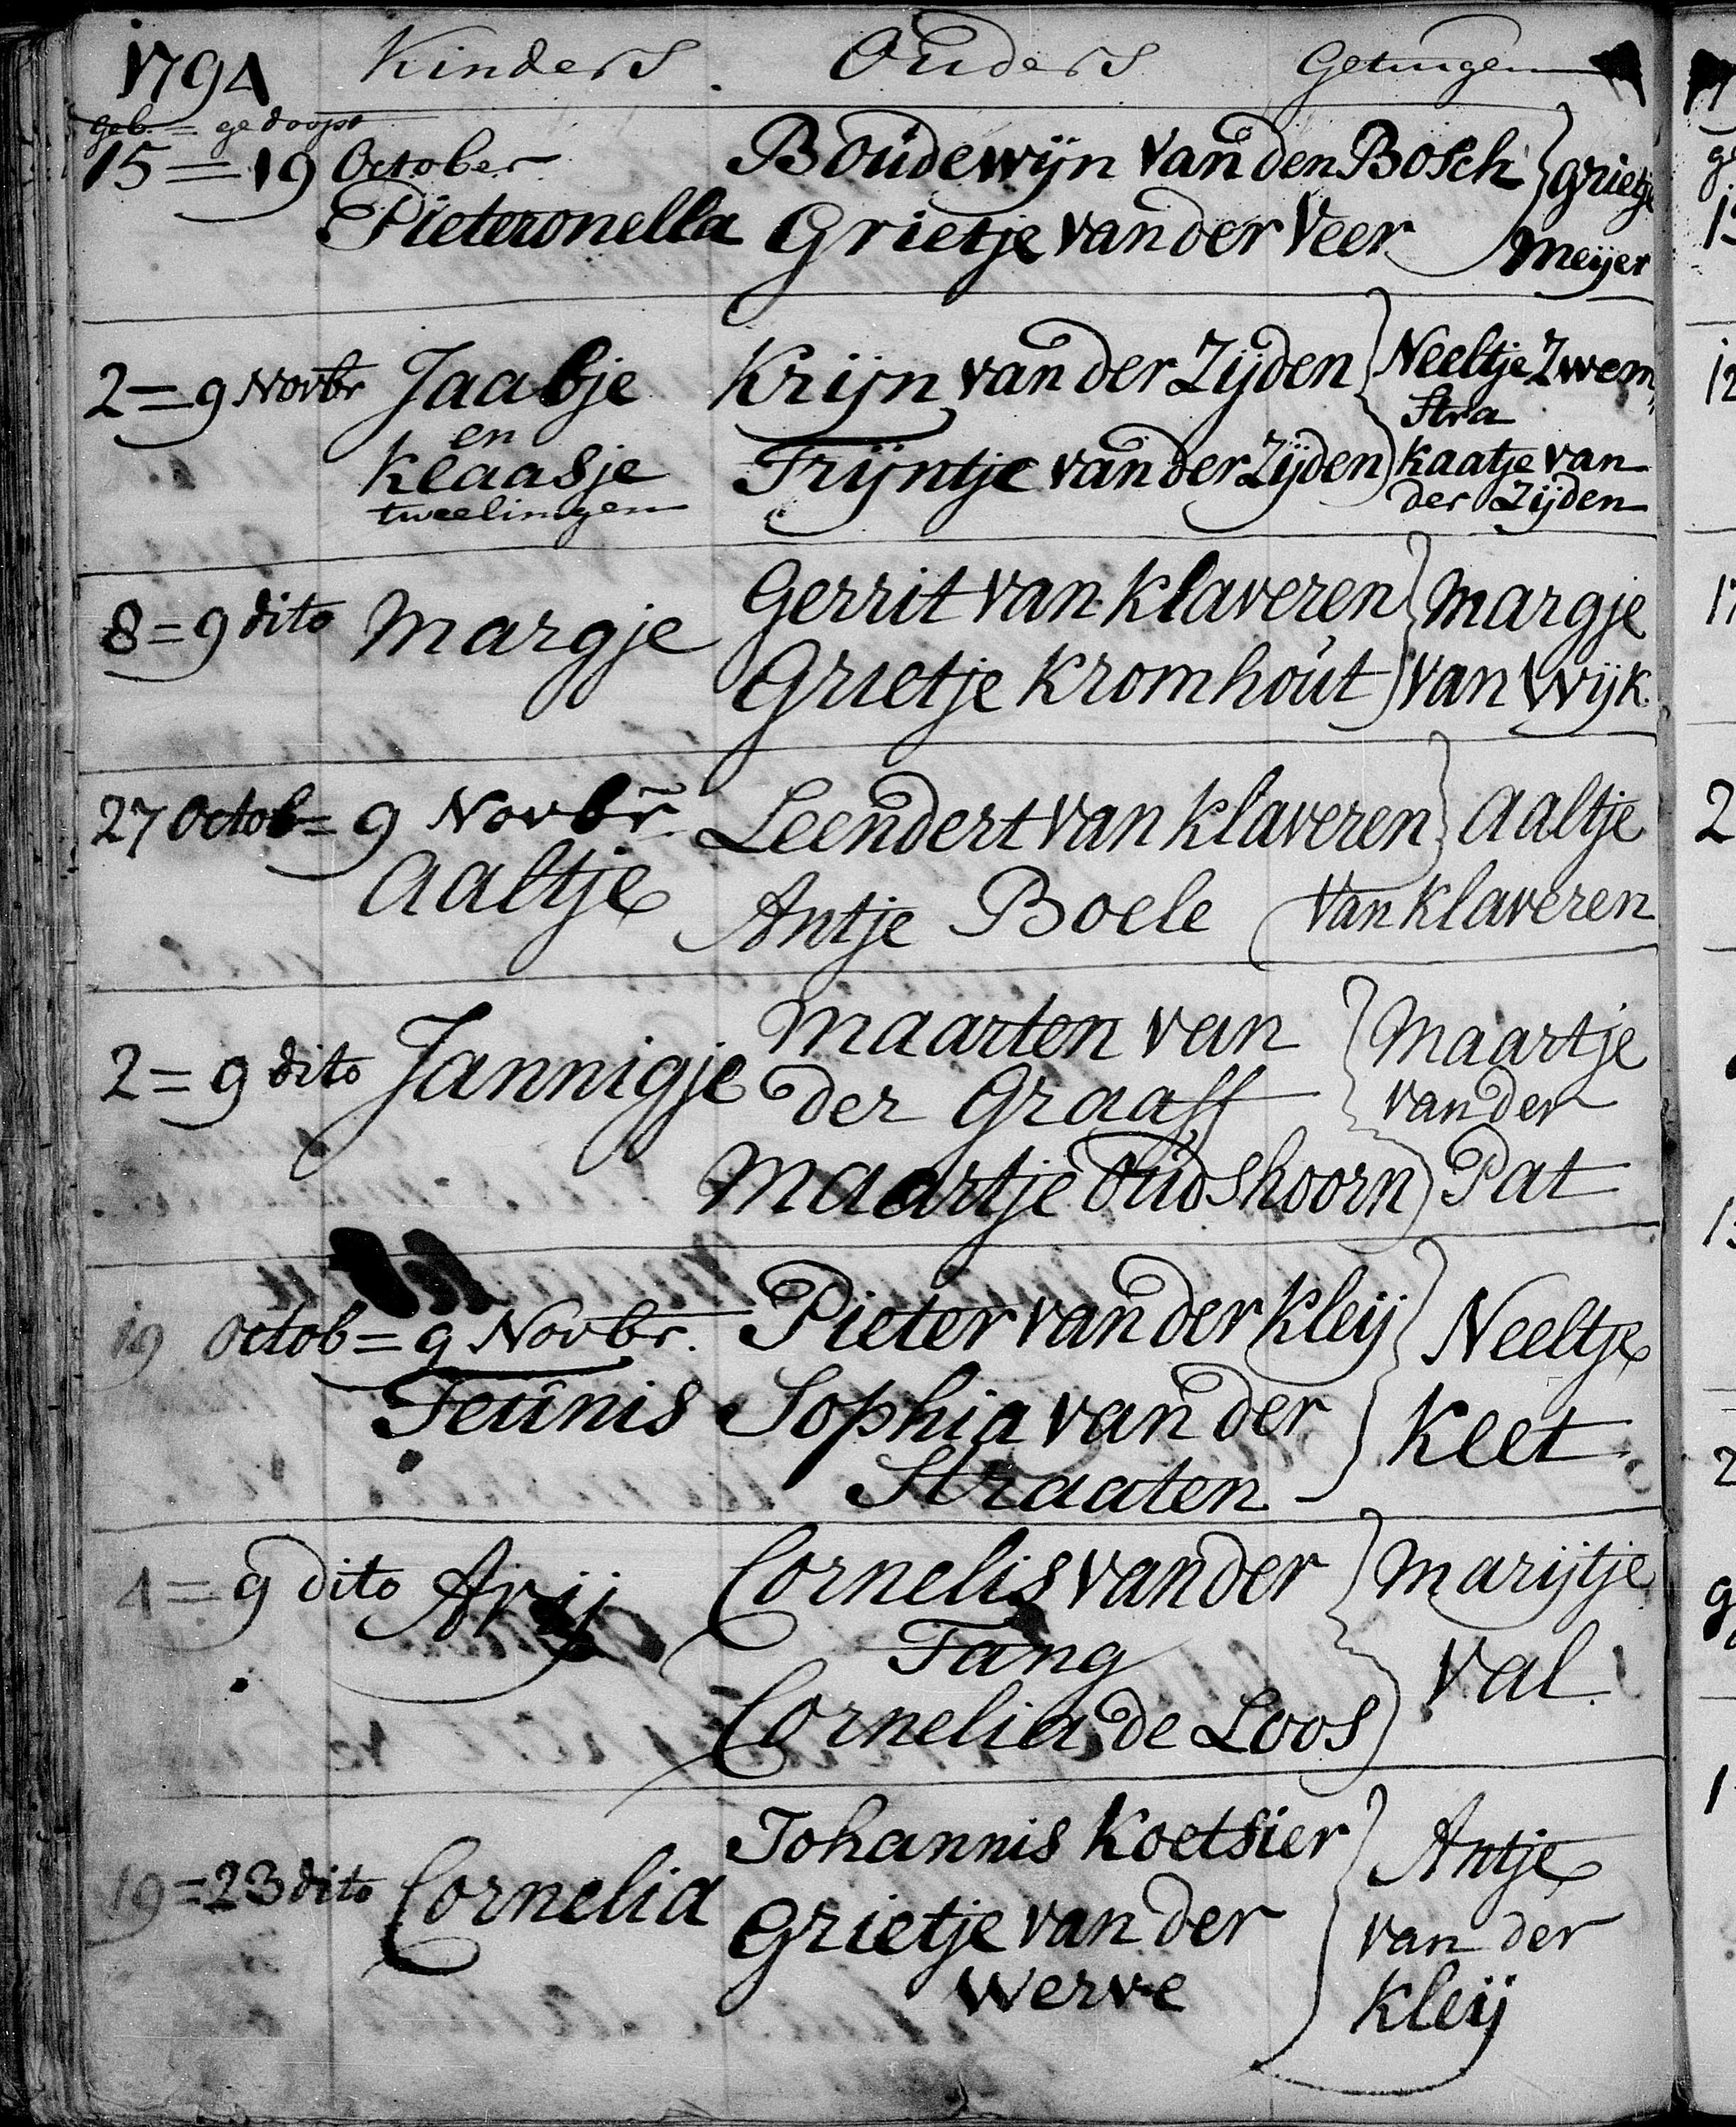 1794 Kinders Ouders Getuigen
geb. = gedoopt
15 = 19 October Boudewijn van den Bosch Grietje
Pieteronella Grietje van der Veer Meijer
2 = 9 Novbr Jaabje Krijn van der Zijden Neeltje Zwem„
en stra
Klaasje Trijntje van der Zijden Kaatje van
tweelingen der Zijden
8 = 9 dito Margje Gerrit van Klaveren Margje
Grietje Kromhout van Wijk
27 Octob = 9 Novbr. Leendert van Klaveren Aaltje
Aaltje Antje Boele van Klaveren
2 = 9 dito Jannigje Maarten van Maartje
der Graaff van der
Maartje Oudshoorn Pat
19 Octob = 9 Novbr. Pieter van der Kleij Neeltje
Teunis Sophia van der Keet
Straaten
4 = 9 dito Arij Cornelis van der Marijtje
Tang Val
Cornelia de Loos
19 = 23 dito Cornelia Johannis Koetsier Antje
Grietje van der van der
Werve Kleij